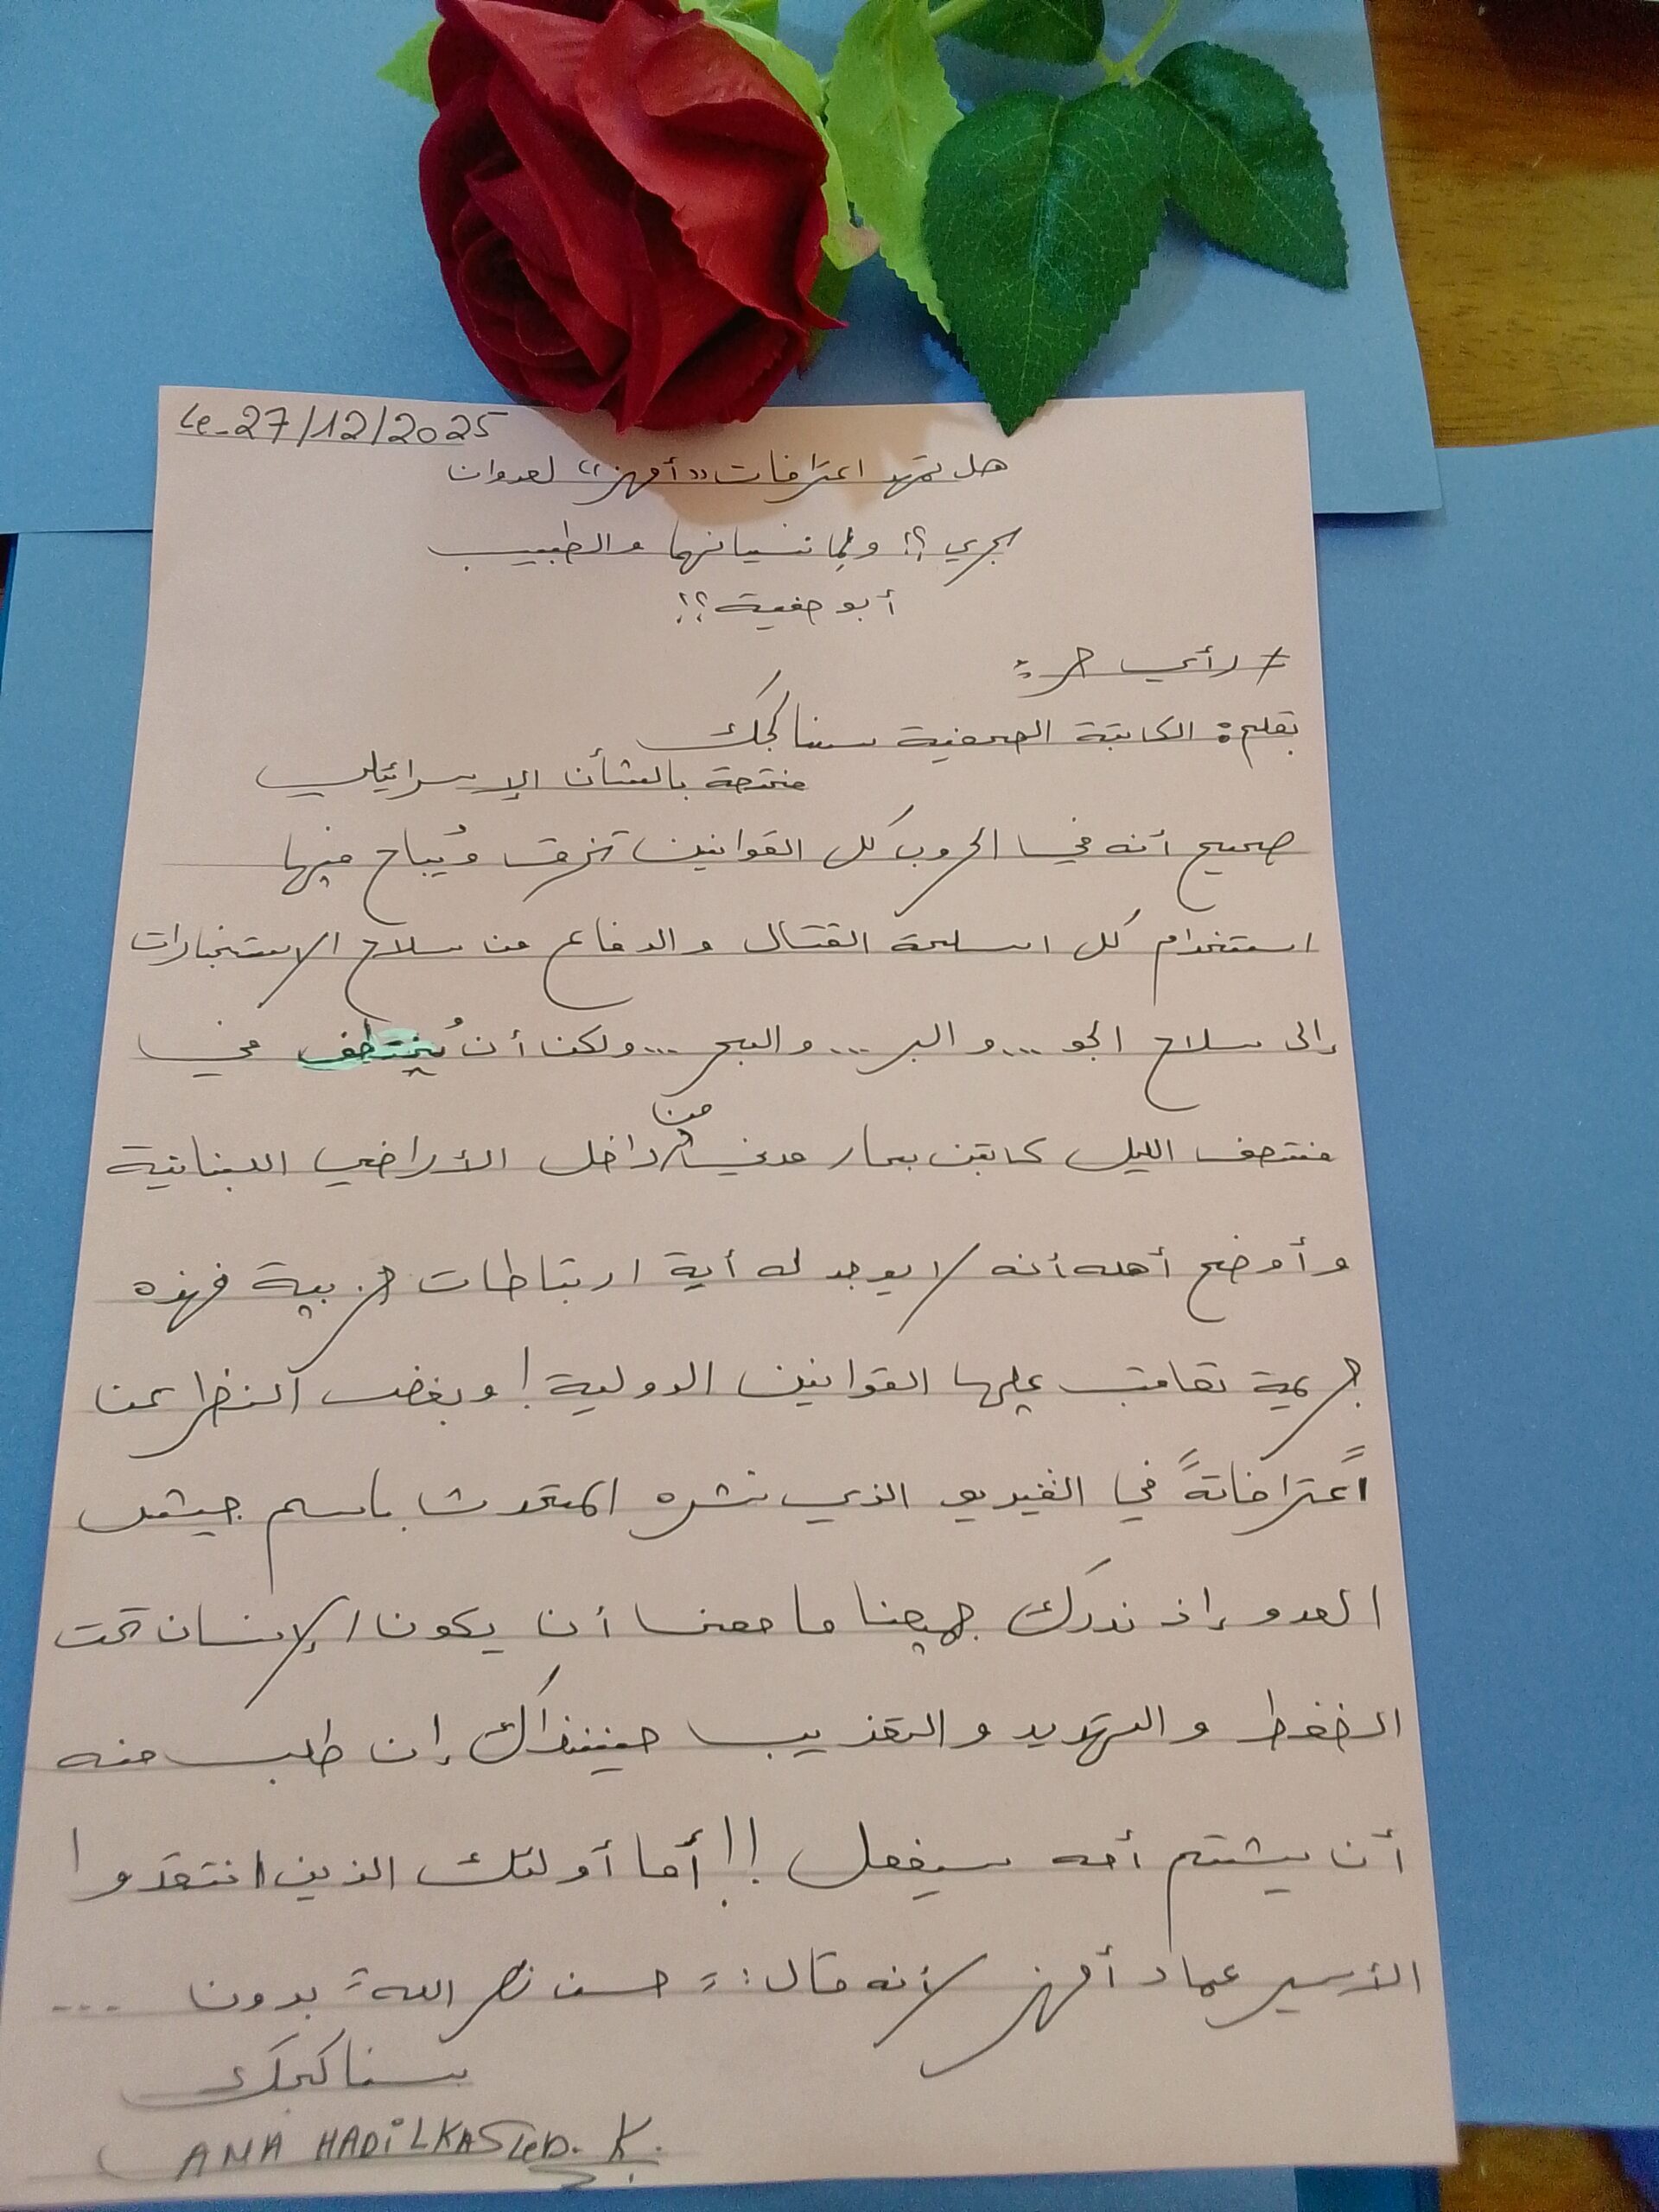 Le_27/12/2025
هل تمهد اعترافات "أمهز" لعدوان
بحري؟! ولِما نسيانهما والطبيب
أبو صفية؟!
≠ رأي حر:
بقلم: الكاتبة الصحفية سنا كجك
مختصة بالشأن الإسرائيلي
صحيح أنه في الحروب كل القوانين تخرق ويُباح فيها
استخدام كل اسلحة القتال والدفاع من سلاح الاستخبارات
إلى سلاح الجو ... والبر ... والبحر ... ولكن أن يُختطف في
منتصف الليل كابتن بحار مدني من داخل الأراضي اللبنانية
وأوضح أهله أنه لا يوجد له أية ارتباطات حزبية فهذه
جريمة تعاقب عليها القوانين الدولية! وبغض النظر عن
اعترافاته في الفيديو الذي نشره المتحدث باسم جيش
العدو إذ ندرك جميعنا ما معنى أن يكون الإنسان تحت
الضغط والتهديد والتعذيب حينذاك إن طلب منه
أن يشتم أمه سيفعل!! أما أولئك الذين انتقدوا
الأسير عماد أمهز لأنه قال: "حسن نصر الله" بدون ...
سنا كجك
ANA HADiLKASieD. K.